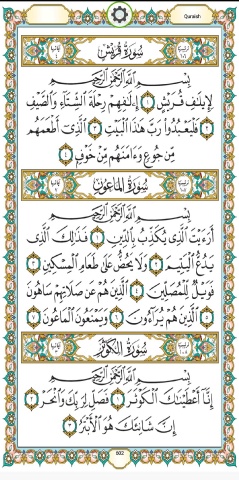 Quraish
سُورَةُ قُرَيْشٍ
بِسْمِ اللَّهِ الرَّحْمَٰنِ الرَّحِيمِ
لِإِيلَٰفِ قُرَيْشٍ ١ إِۦلَٰفِهِمْ رِحْلَةَ الشِّتَآءِ وَالصَّيْفِ
٢ فَلْيَعْبُدُوا۟ رَبَّ هَٰذَا الْبَيْتِ ٣ الَّذِىٓ أَطْعَمَهُم
مِّن جُوعٍ وَءَامَنَهُم مِّنْ خَوْفٍۭ ٤
سُورَةُ الْمَاعُونِ
بِسْمِ اللَّهِ الرَّحْمَٰنِ الرَّحِيمِ
أَرَءَيْتَ الَّذِى يُكَذِّبُ بِالدِّينِ ١ فَذَٰلِكَ الَّذِى
يَدُعُّ الْيَتِيمَ ٢ وَلَا يَحُضُّ عَلَىٰ طَعَامِ الْمِسْكِينِ ٣
فَوَيْلٌ لِّلْمُصَلِّينَ ٤ الَّذِينَ هُمْ عَن صَلَاتِهِمْ سَاهُونَ
٥ الَّذِينَ هُمْ يُرَآءُونَ ٦ وَيَمْنَعُونَ الْمَاعُونَ ٧
سُورَةُ الْكَوْثَرِ
بِسْمِ اللَّهِ الرَّحْمَٰنِ الرَّحِيمِ
إِنَّآ أَعْطَيْنَٰكَ الْكَوْثَرَ ١ فَصَلِّ لِرَبِّكَ وَانْحَرْ ٢
إِنَّ شَانِئَكَ هُوَ الْأَبْتَرُ ٣
602